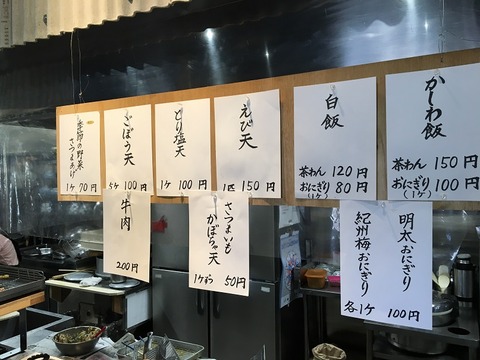 かしわ飯
茶わん 150円
おにぎり 100円
(1ケ)
白飯
茶わん 120円
おにぎり 80円
(1ケ)
えび天
1匹 150円
とり塩天
1ケ 100円
ごぼう天
5ケ 100円
季節の野菜
さつまあげ
1ケ 70円
明太おにぎり
紀州梅おにぎり
各1ケ 100円
さつまいも
かぼちゃ天
1ケずつ 50円
牛肉
200円